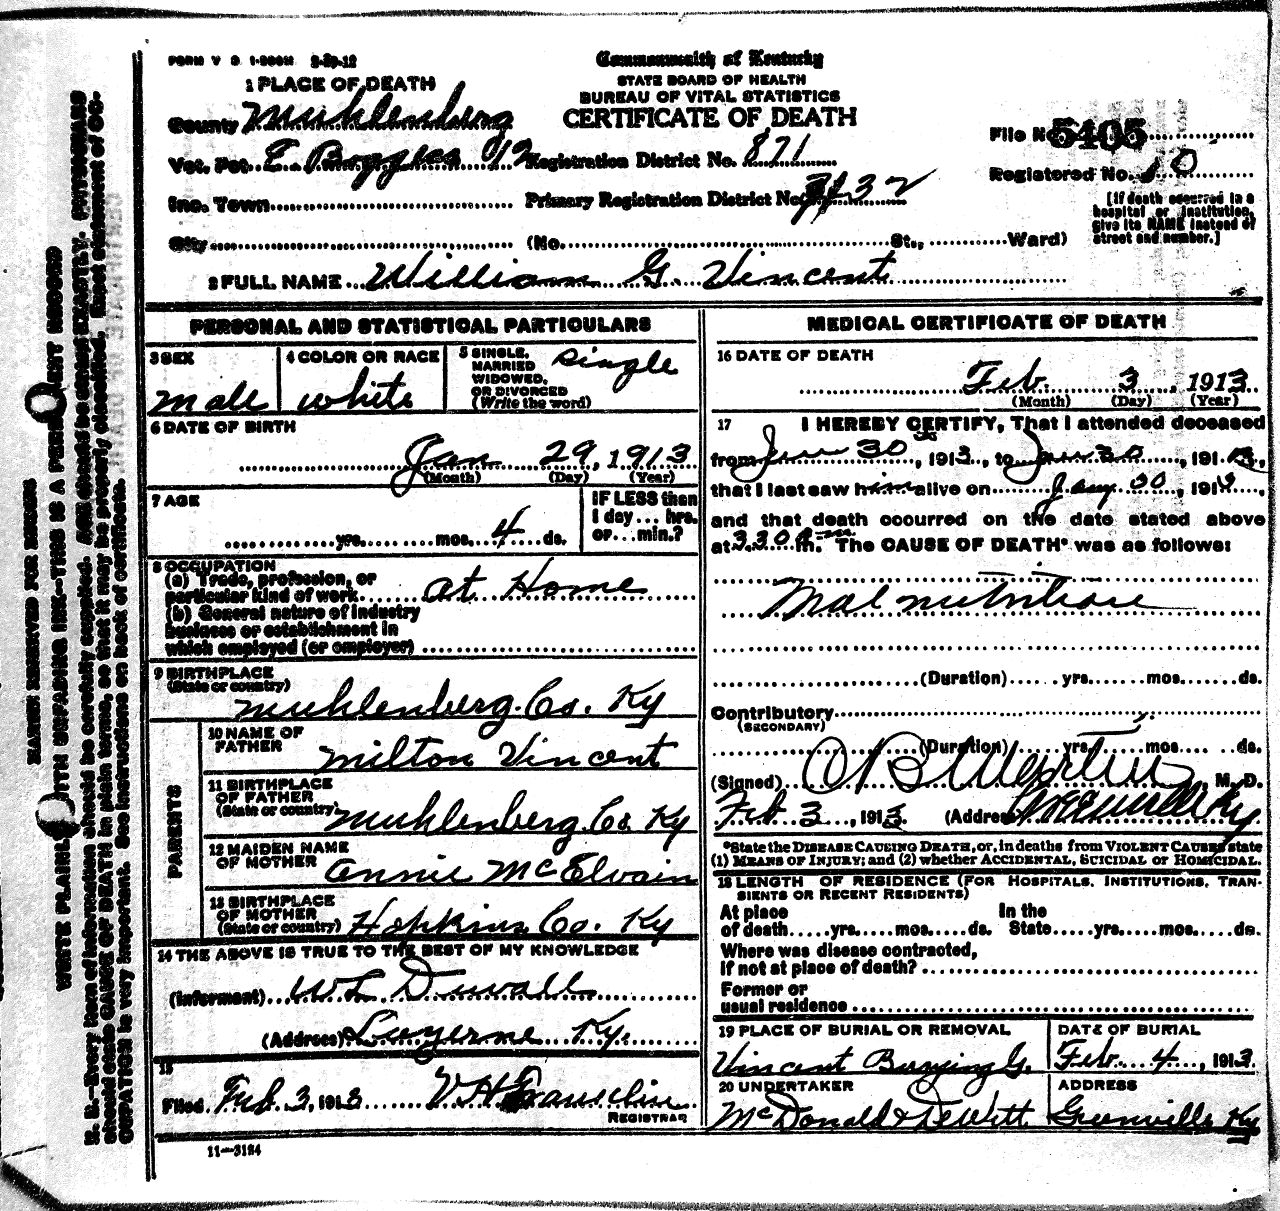 FORM V S 1-200M 2-29-12
Commonwealth of Kentucky
STATE BOARD OF HEALTH
BUREAU OF VITAL STATISTICS
CERTIFICATE OF DEATH
1 PLACE OF DEATH
County Muhlenberg
Vot. Pct. E Boggess 12 Registration District No. 871
File No. 5405
Registered No. 10
Inc. Town Primary Registration District No. 7132
[If death occurred in a hospital or institution, give its NAME instead of street and number.]
City (No. St., Ward)
2 FULL NAME William G. Vincent
PERSONAL AND STATISTICAL PARTICULARS
3 SEX
Male
4 COLOR OR RACE
White
5 SINGLE, MARRIED WIDOWED, OR DIVORCED (Write the word)
Single
6 DATE OF BIRTH
Jan 29, 1913
(Month) (Day) (Year)
7 AGE
yrs. mos. 4 ds.
IF LESS than
1 day ... hrs.
or ... min.?
8 OCCUPATION
(a) Trade, profession, or
particular kind of work At Home
(b) General nature of industry
business or establishment in
which employed (or employer)
9 BIRTHPLACE
(State or country)
Muhlenberg Co. Ky
PARENTS
10 NAME OF FATHER
Milton Vincent
11 BIRTHPLACE OF FATHER (State or country)
Muhlenberg Co Ky
12 MAIDEN NAME OF MOTHER
Annie McElvain
13 BIRTHPLACE OF MOTHER (State or country)
Hopkins Co. Ky
14 THE ABOVE IS TRUE TO THE BEST OF MY KNOWLEDGE
(Informant) W L Duvall
(Address) Luzerne Ky.
15
Filed Feb 3, 1913
REGISTRAR
11-3184
MEDICAL CERTIFICATE OF DEATH
16 DATE OF DEATH
Feb. 3, 1913
(Month) (Day) (Year)
17 I HEREBY CERTIFY, That I attended deceased
from Jan 30, 1913, to Jan 30, 1913,
that I last saw him alive on Jany 30, 1913,
and that death occurred on the date stated above
at 330 m. The CAUSE OF DEATH* was as follows:
Mal nutrition
(Duration) yrs. mos. ds.
Contributory
(SECONDARY)
(Duration) yrs. mos. ds.
(Signed) M. D.
Feb 3, 1913. (Address) Greenville Ky
*State the DISEASE CAUSING DEATH, or, in deaths from VIOLENT CAUSES state
(1) MEANS OF INJURY; and (2) whether ACCIDENTAL, SUICIDAL OR HOMICIDAL.
18 LENGTH OF RESIDENCE (FOR HOSPITALS, INSTITUTIONS, TRANSIENTS OR RECENT RESIDENTS)
At place of death yrs. mos. ds. In the State yrs. mos. ds.
Where was disease contracted,
If not at place of death?
Former or
usual residence
19 PLACE OF BURIAL OR REMOVAL
Vincent Burying G.
DATE OF BURIAL
Feb 4, 1913
20 UNDERTAKER
McDonald & DeWitt
ADDRESS
Greenville Ky
MARGIN RESERVED FOR BINDING
WRITE PLAINLY WITH UNFADING INK—THIS IS A PERMANENT RECORD
N. B.—Every item of information should be carefully supplied. AGE should be stated EXACTLY. PHYSICIANS
should state CAUSE OF DEATH in plain terms, so that it may be properly classified. Exact statement of OC-
CUPATION is very important. See instructions on back of certificate.